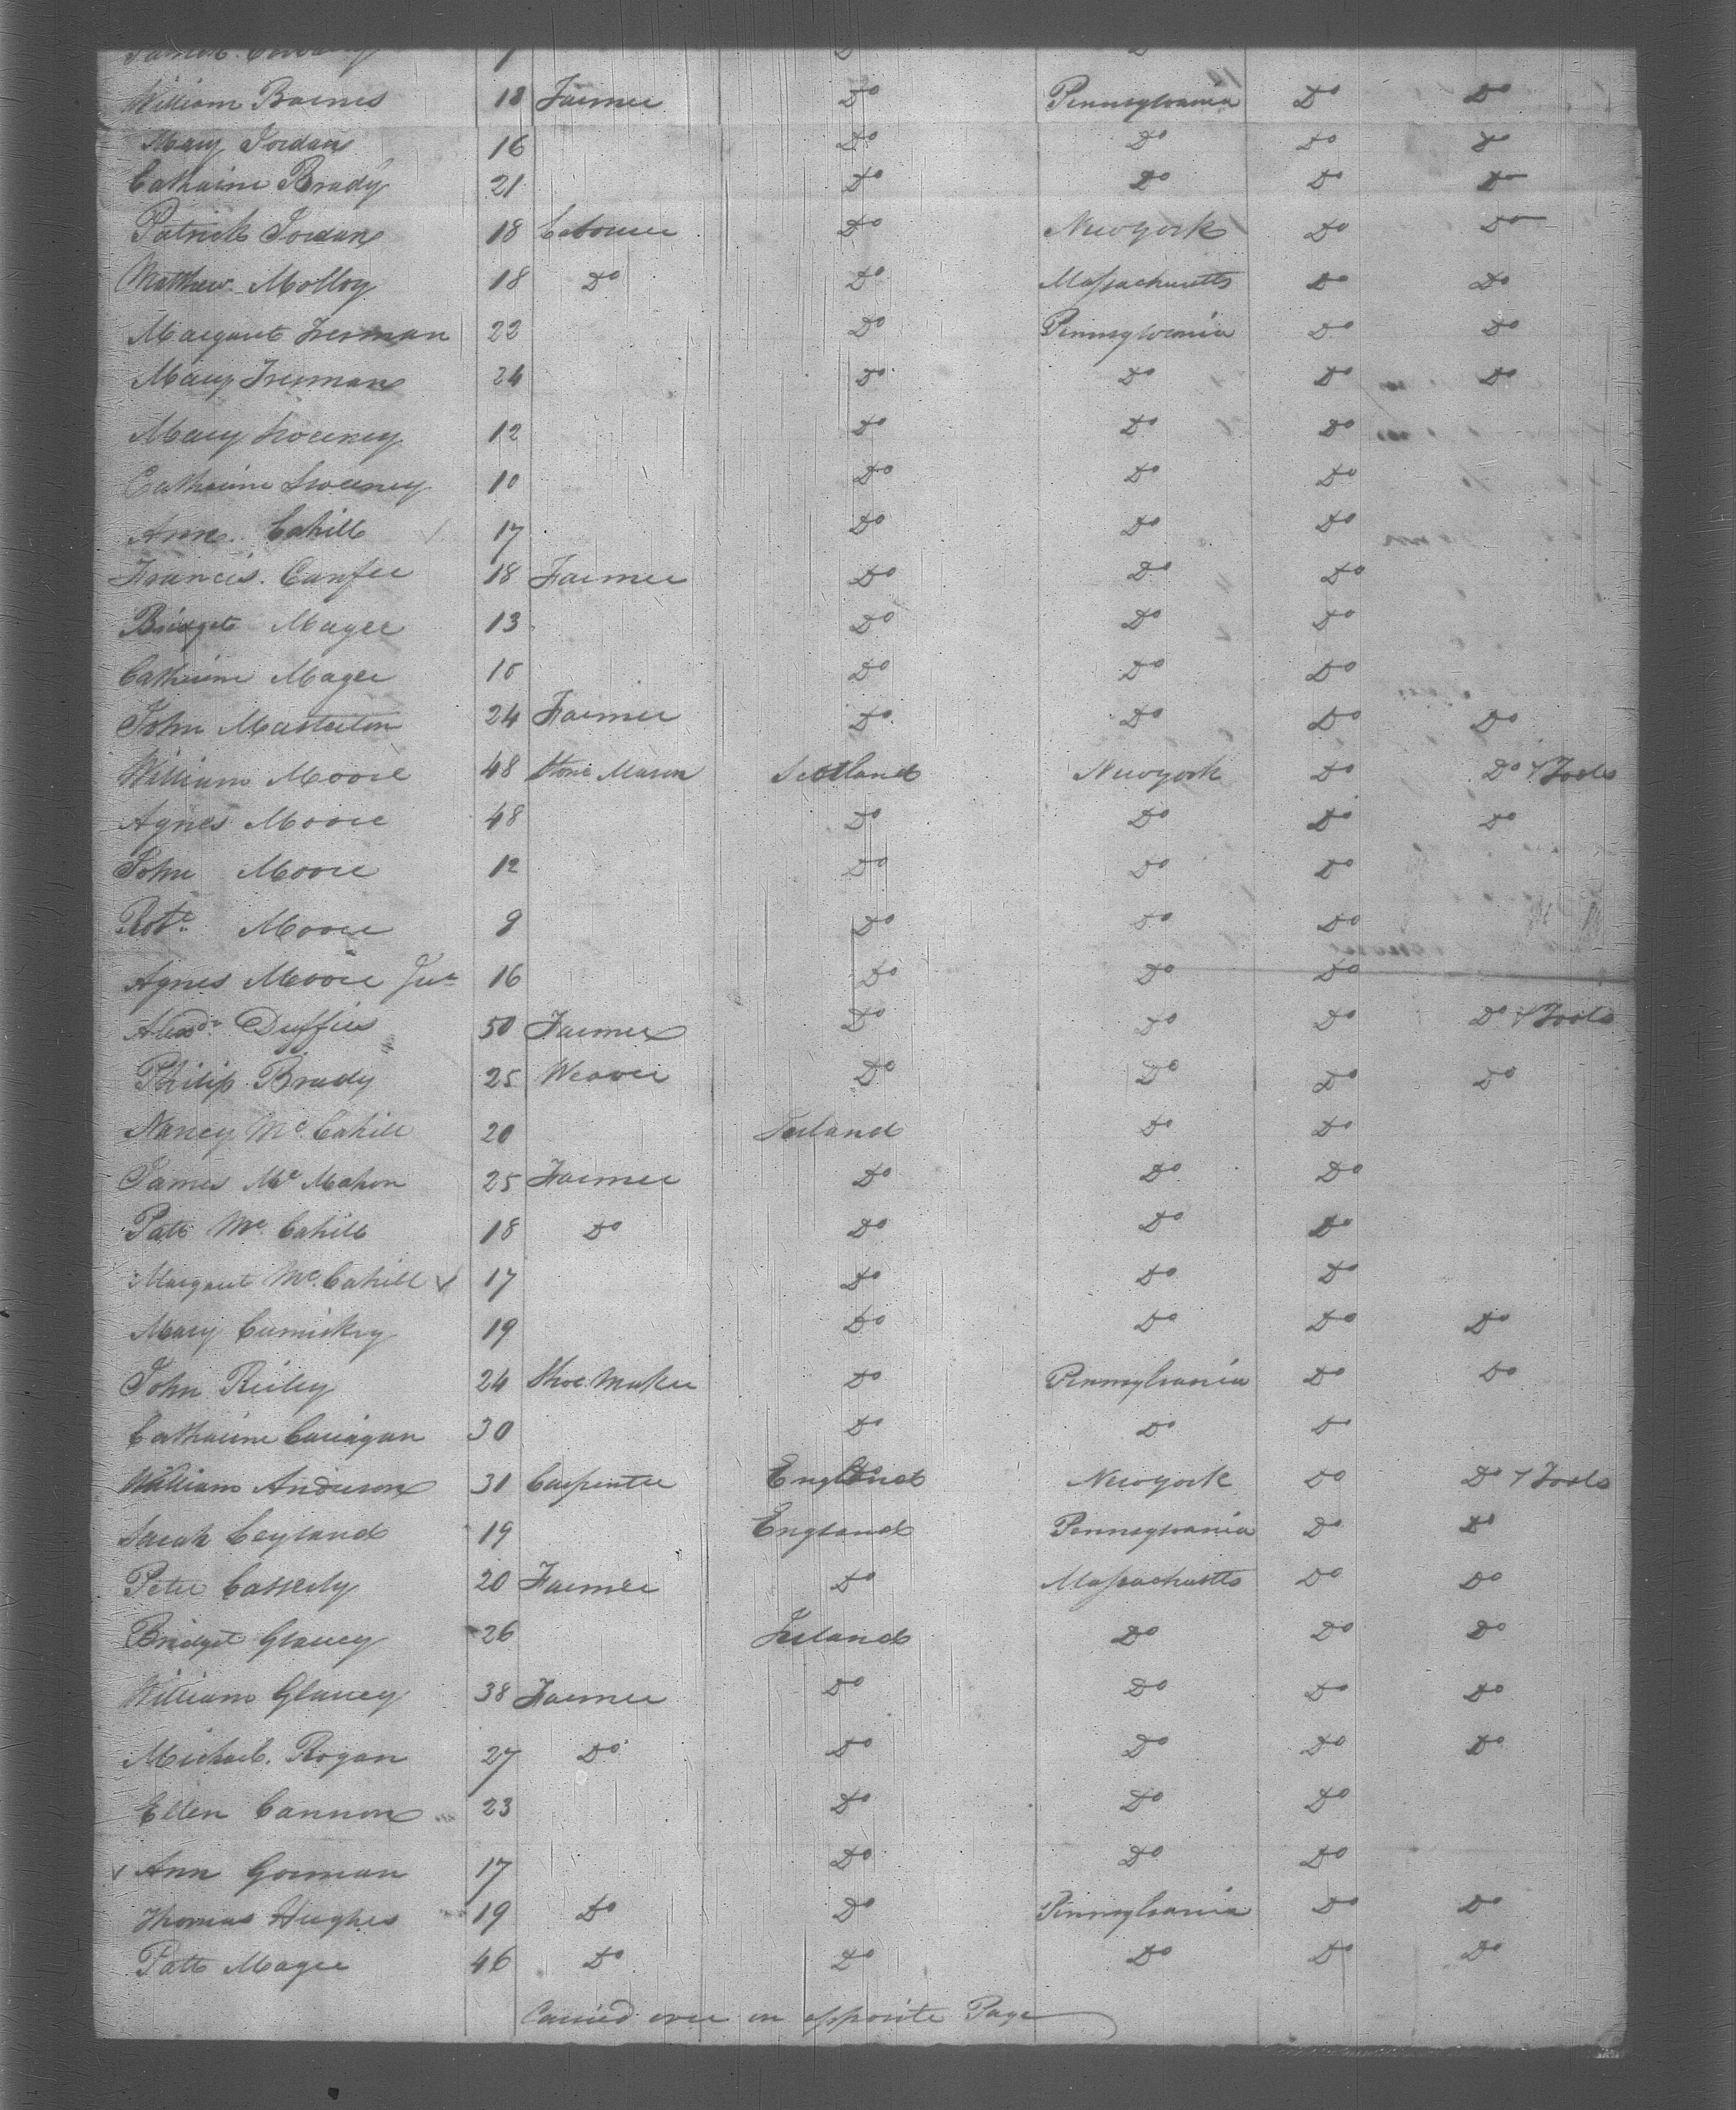 William Barnes 18 Farmer Do Pennsylvania Do Do
Mary Jordan 16 Do Do Do Do
Catharine Brady 21 Do Do Do Do
Patrick Jordan 18 Labourer Do Newyork Do Do
Matthew Molloy 18 Do Do Massachusetts Do Do
Margaret Freeman 22 Do Pennsylvania Do Do
Mary Freeman 24 Do Do Do Do
Mary Sweeney 12 Do Do Do
Catharine Sweeney 10 Do Do Do
Ann Cahill 17 Do Do Do
Francis 18 Farmer Do Do Do
Bridget Magee 13 Do Do Do
Catharine Magee 10 Do Do Do
John Masterton 24 Farmer Do Do Do Do
William Moore 48 Stone Mason Scotland Newyork Do Do & Tools
Agnes Moore 48 Do Do Do Do
John Moore 12 Do Do Do
Robt Moore 9 Do Do Do
Agnes Moore Jur 16 Do Do Do
Alexdr Duffies 50 Farmer Do Do Do Do & Tools
Philip Brady 25 Weaver Do Do Do Do
Nancy Mc Cahill 20 Ireland Do Do
James Mc Mahon 25 Farmer Do Do Do
Patt Mc Cahill 18 Do Do Do Do
Margaret Mc Cahill 17 Do Do Do
Mary Cumiskey 19 Do Do Do Do
John Reiley 24 Shoe Maker Do Pennsylvania Do Do
Catharine Carrigan 30 Do Do Do
William Anderson 31 Carpenter England Newyork Do Do & Tools
Sarah Leyland 19 England Pennsylvania Do Do
Peter Casserly 20 Farmer Do Massachusetts Do Do
Bridget Glancy 26 Ireland Do Do Do
William Glancy 38 Farmer Do Do Do Do
Michael Rogan 27 Do Do Do Do Do
Ellen Cannon 23 Do Do Do
Ann Gorman 17 Do Do Do
Thomas Hughes 19 Do Do Pennsylvania Do Do
Patt Magee 46 Do Do Do Do Do
Carried over on opposite Page